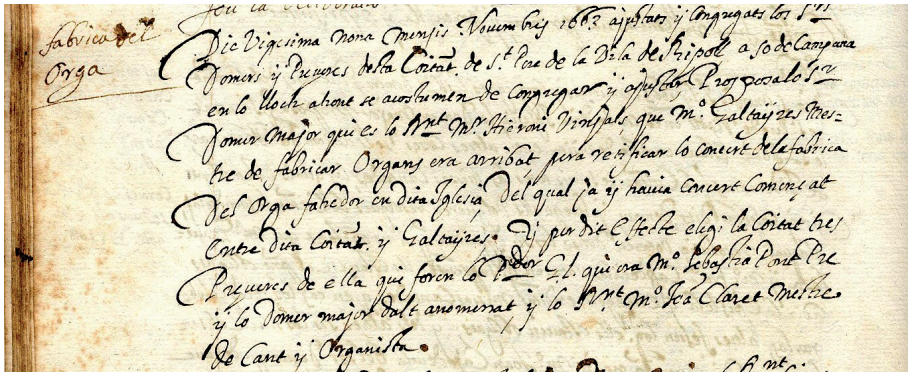 feu la
fabrica del
Orga
Die Vigesima nona mensis Nouembris 1663 ajustats y congregats los Srs
Domers y Preueres desta Coitat. de St. Pere de la Vila de Ripoll a so de Campana
en lo lloch ahont se acostumen de congregar y ajustar Propposa lo Sr
Domer major qui es lo Rnt Mr. Hieroni Vinyals, que Mo Galtayres Mes=
tre de fabricar Organs era arribat, pera retificar lo concert de la fabrica
Del Orga fahedor en dita Iglesia, Del qual ja y hauia concert Començat
Entre dita Coitat. y Galtayres. Y per dit Effecte elegi la Coitat tres
Preueres de ella qui foren lo Pedor G.l. qui era Mo. Sebastia Pont Pre
y lo Domer major dalt anomenat y lo Rnt Mo. Joa Claret Mestre
de Cant y Organista.